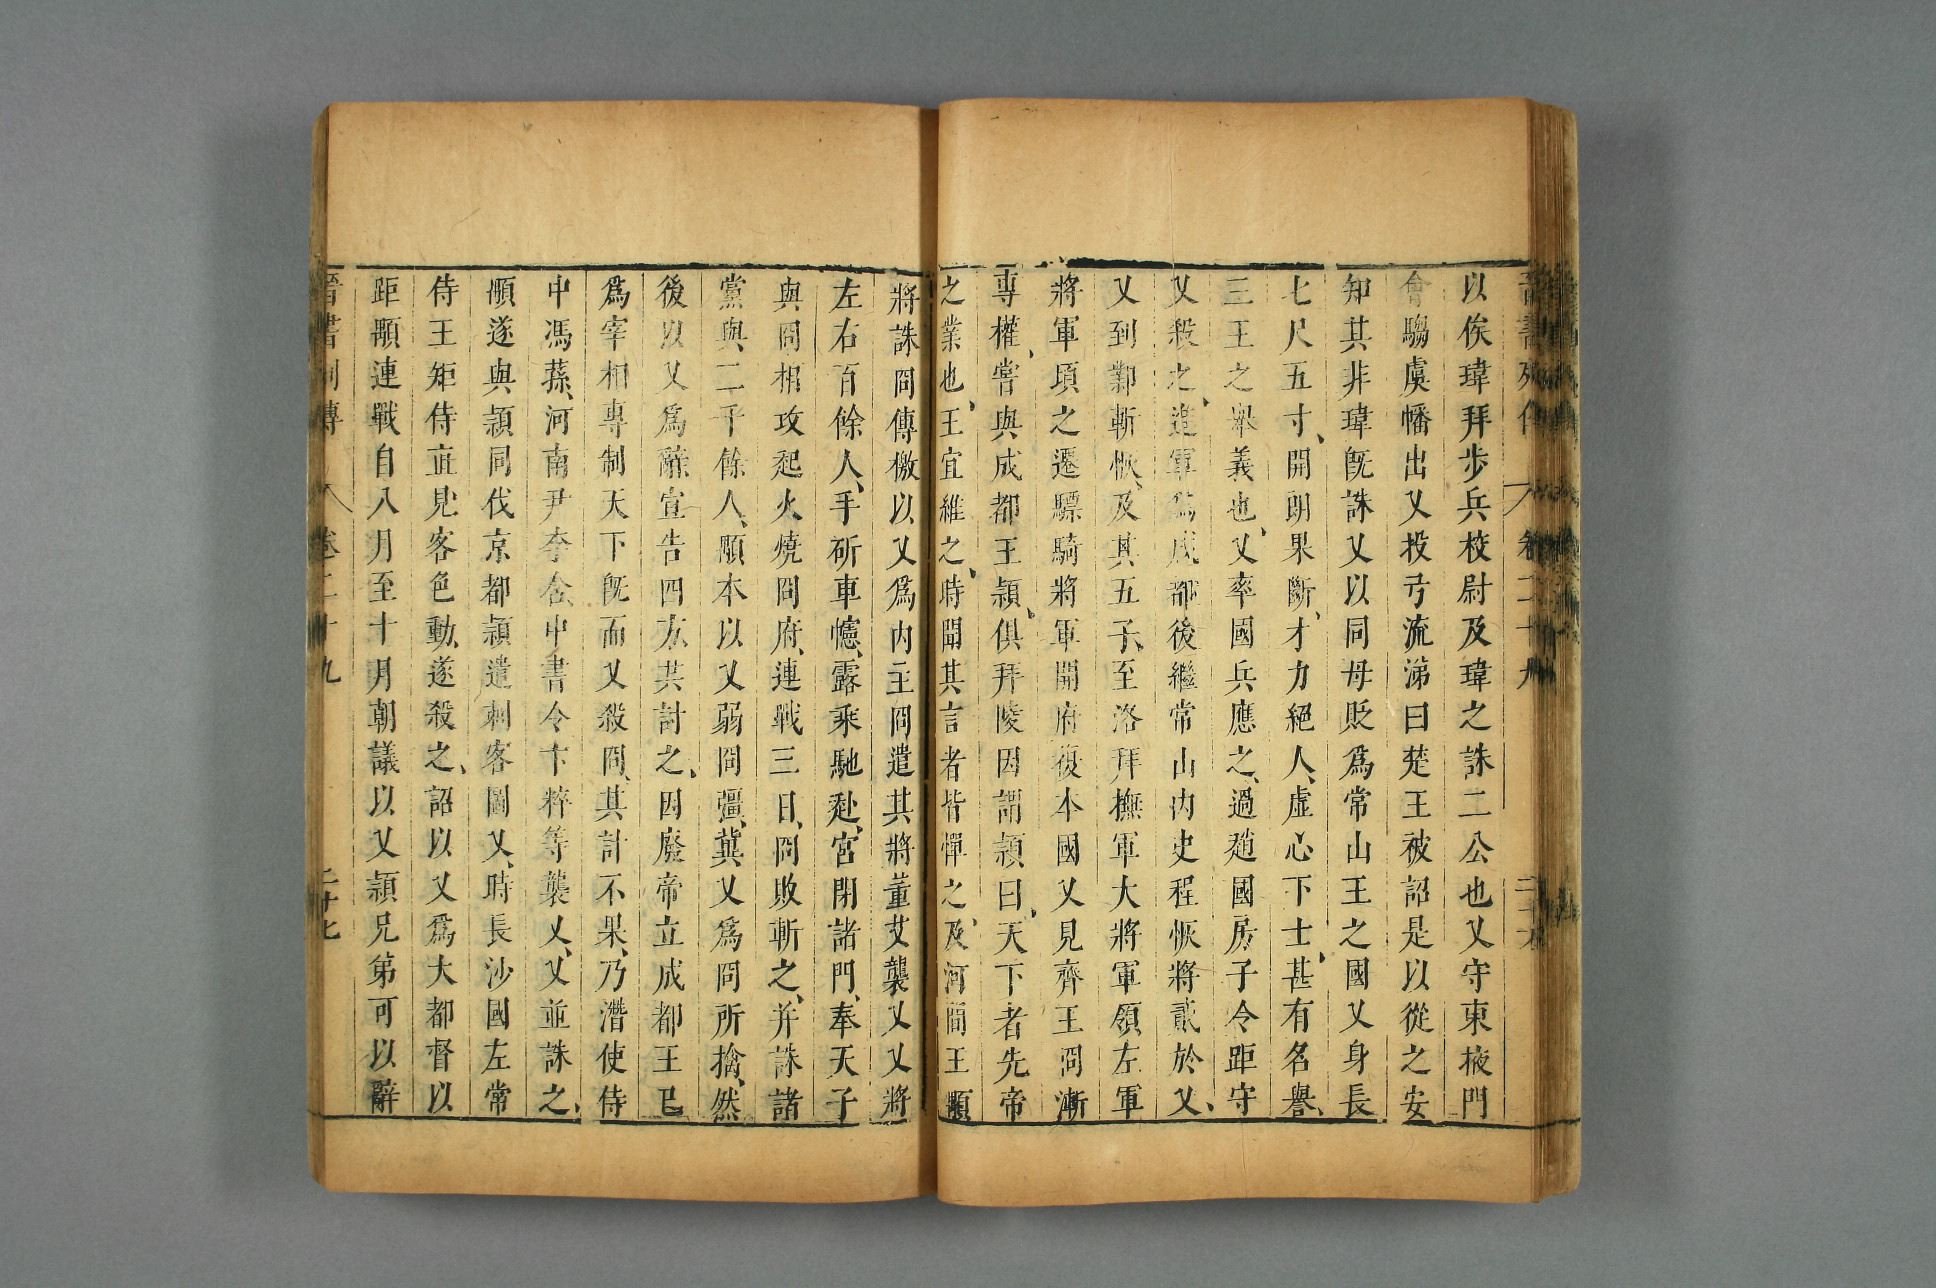 晉書列傳 卷二十九 二十六
以俟瑋拜步兵校尉及瑋之誅二公也乂守東掖門
會騶虞幡出乂投弓流涕曰楚王被詔是以從之安
知其非瑋旣誅乂以同母貶爲常山王之國乂身長
七尺五寸、開朗果斷、才力絕人、虛心下士、甚有名譽、
三王之舉義也、乂率國兵應之、過趙國房子令距守
乂殺之、進軍爲成都後繼常山內史程恢將貳於乂、
又到鄴斬恢、及其五子、至洛拜撫軍大將軍領左軍
將軍頃之遷驃騎將軍開府復本國乂見齊王冏漸
專權、嘗與成都王穎、俱拜陵因謂穎曰、天下者先帝
之業也、王宜維之、時聞其言者皆憚之、及河間王顒
將誅冏傳檄以乂爲內主冏遣其將董艾襲乂乂將
左右百餘人、手斫車幰、露乘馳赴、宮閉諸門、奉天子
與冏相攻起火燒冏府、連戰三日、冏敗斬之、并誅諸
黨與、二千餘人、顒本以乂弱冏彊、冀乂爲冏所擒、然
後以乂爲辭宣告四方、共討之、因廢帝立成都王已
爲宰相專制天下旣而乂殺冏、其計不果、乃潛使侍
中馮蓀、河南尹李含、中書令卞粹等襲乂、乂並誅之、
顒遂與穎同伐京都穎遣刺客圖乂、時長沙國左常
侍王矩侍直見客色動、遂殺之、詔以乂爲大都督以
距顒連戰自八月至十月朝議以乂穎兄弟可以辭
晉書列傳 卷二十九 二十七